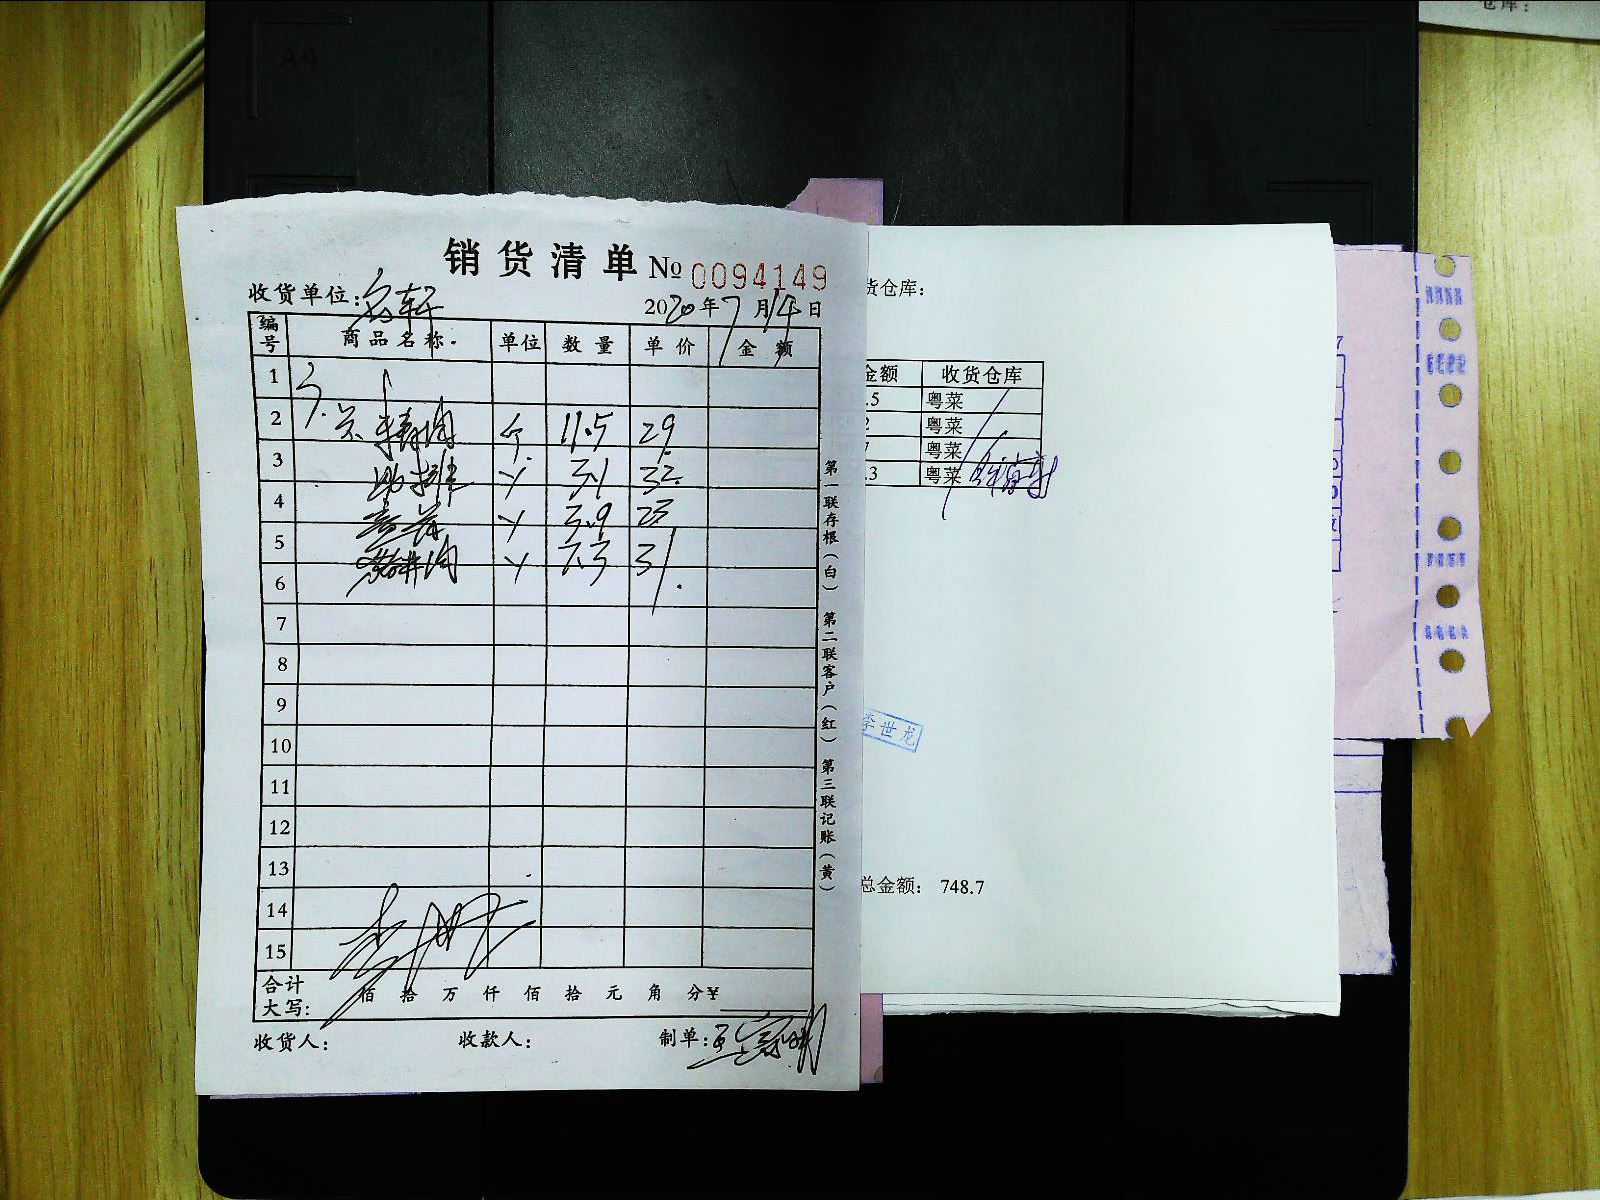 仓库：
销货清单 № 0094149
收货单位：名轩
2020年7月14日
编号 商品名称 单位 数量 单价 金额
1
2 精肉 个 11.5 29
3 排 3.1 32
4 3.9 23
5 肉 7.3 31
6
7
8
9
10
11
12
13
14
15
合计大写： 佰 拾 万 仟 佰 拾 元 角 分 ¥
收货人： 收款人： 制单：
第一联存根（白） 第二联客户（红） 第三联记账（黄）
货仓库：
金额 收货仓库
.5 粤菜
2 粤菜
7 粤菜
.3 粤菜
李世龙
总金额： 748.7